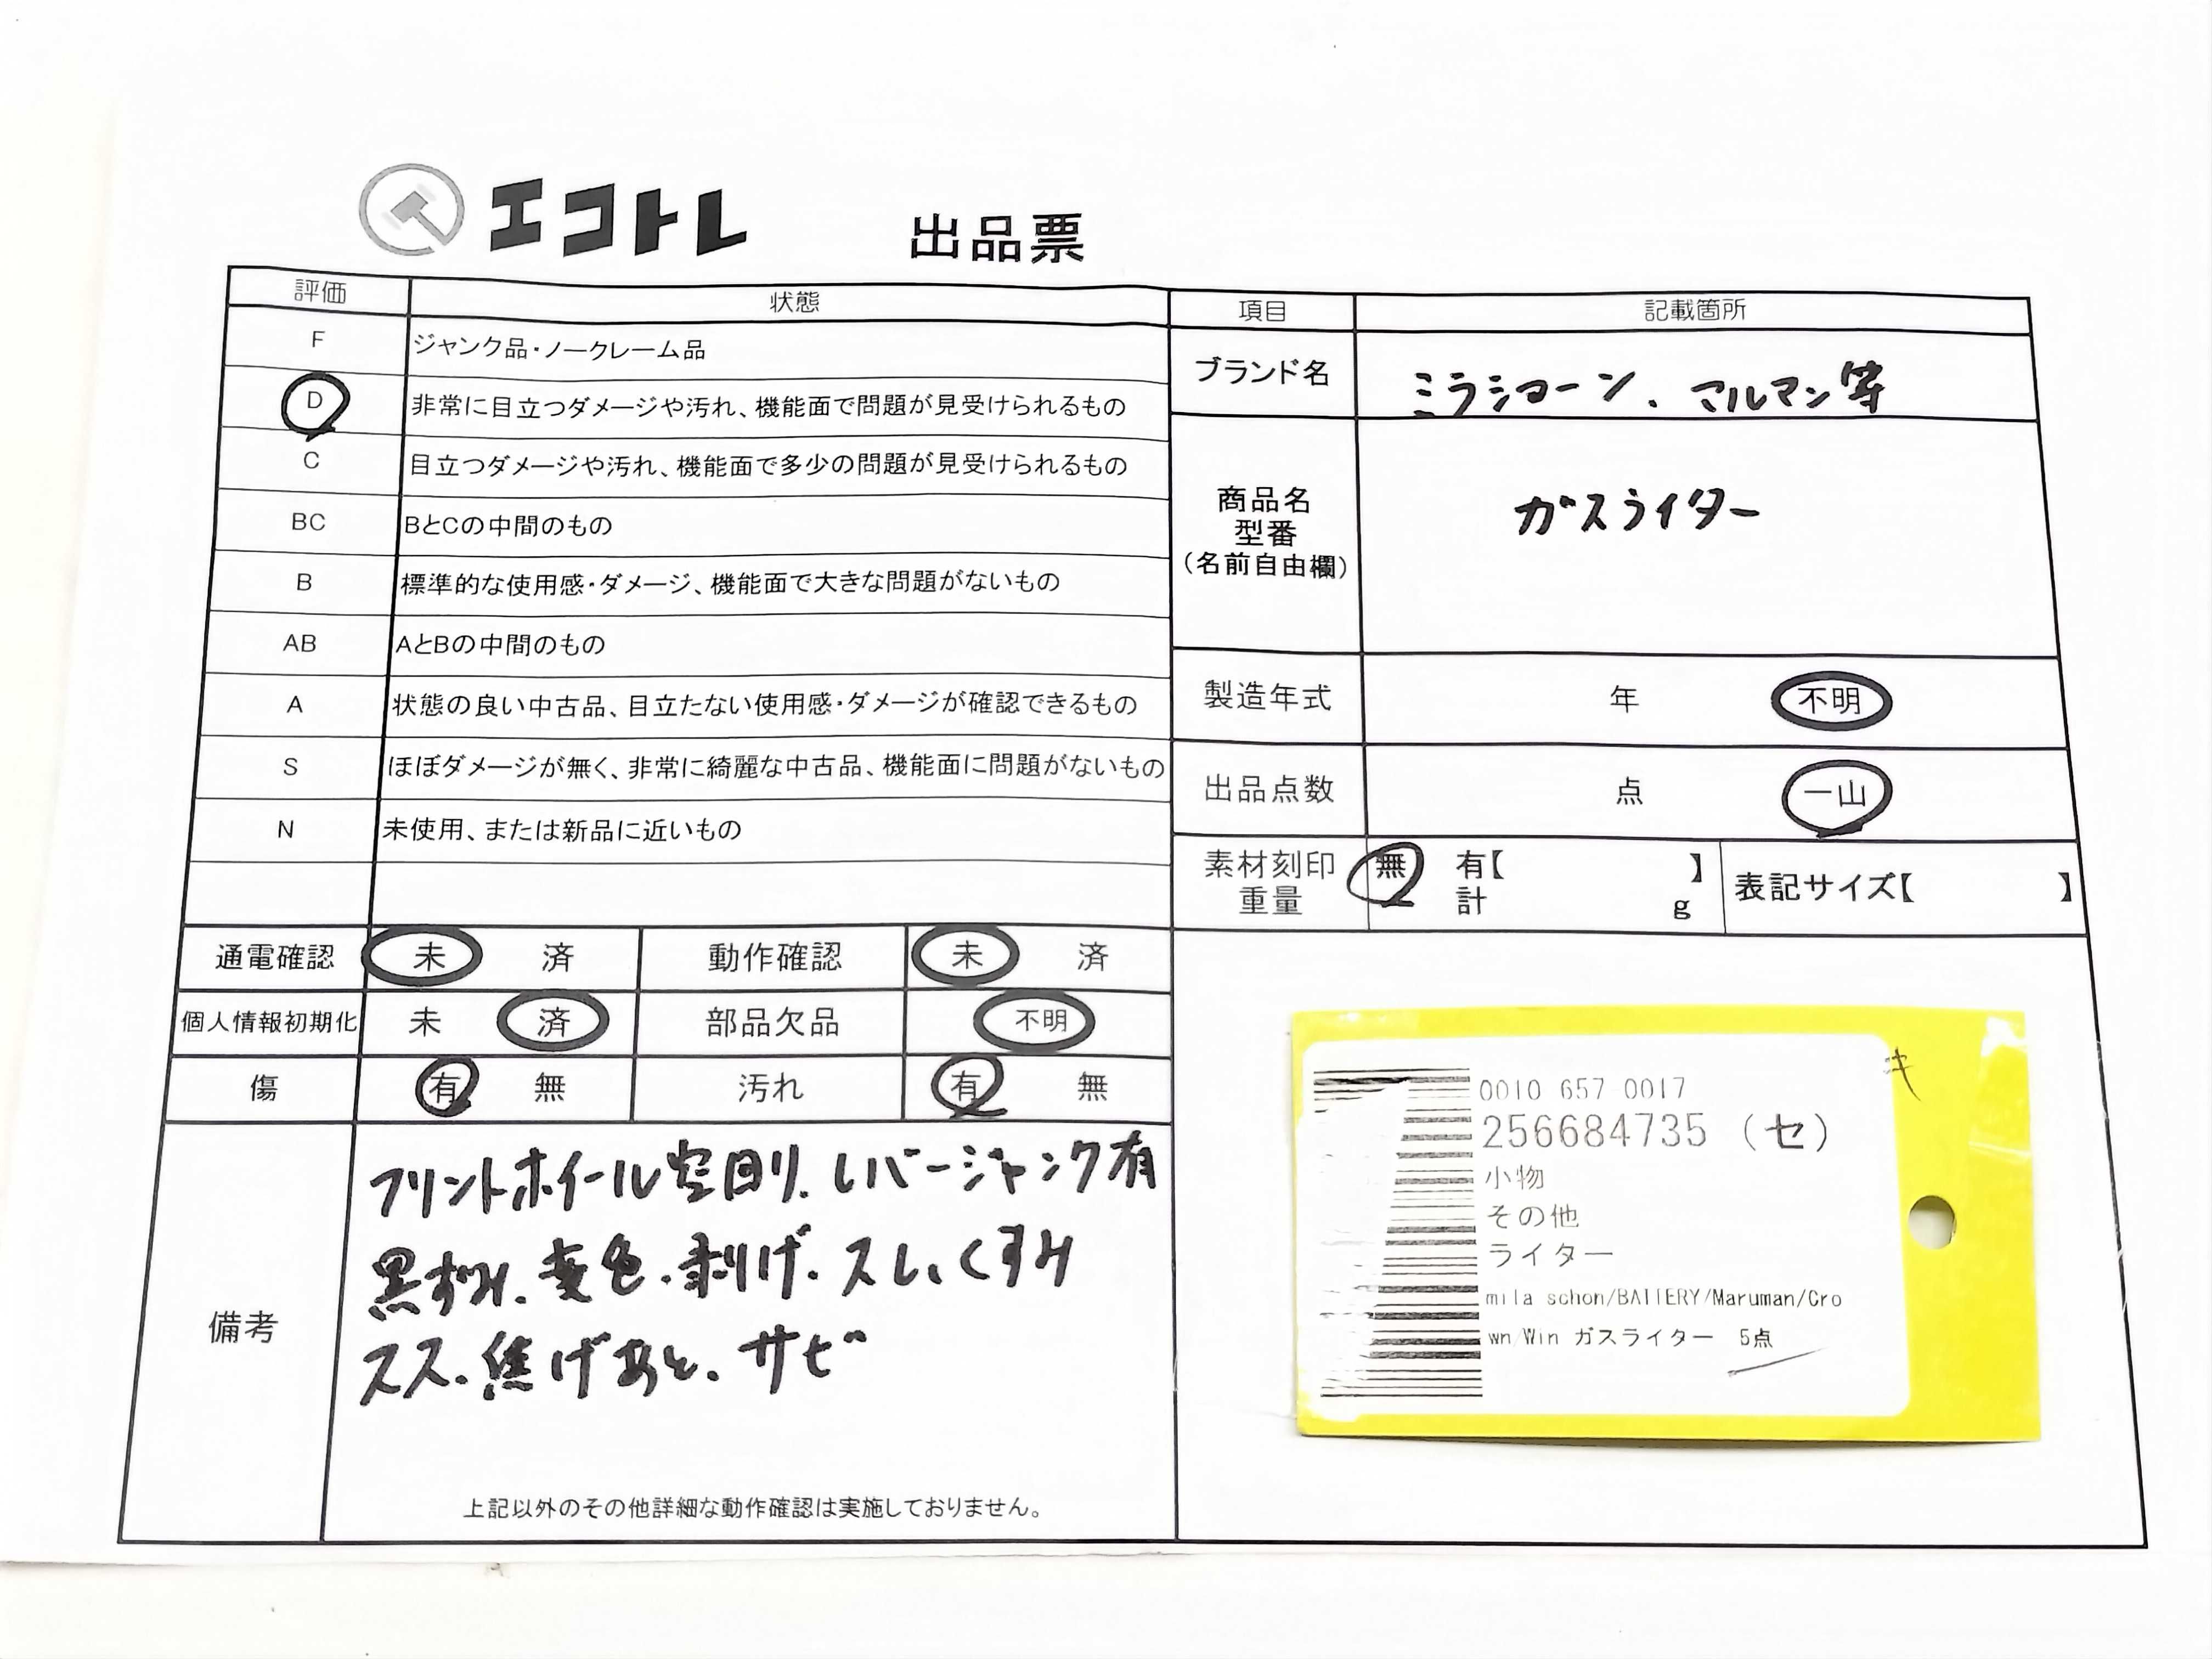 エコトレ 出品票
評価 状態
F ジャンク品・ノークレーム品
D 非常に目立つダメージや汚れ、機能面で問題が見受けられるもの
C 目立つダメージや汚れ、機能面で多少の問題が見受けられるもの
BC BとCの中間のもの
B 標準的な使用感・ダメージ、機能面で大きな問題がないもの
AB AとBの中間のもの
A 状態の良い中古品、目立たない使用感・ダメージが確認できるもの
S ほぼダメージが無く、非常に綺麗な中古品、機能面に問題がないもの
N 未使用、または新品に近いもの
通電確認 未 済 動作確認 未 済
個人情報初期化 未 済 部品欠品 不明
傷 有 無 汚れ 有 無
備考
フリントホイール空回り、レバージャンク有
黒ずみ、変色、剥げ、スレ、くすみ
スス、焦げあと、サビ
上記以外のその他詳細な動作確認は実施しておりません。
項目 記載箇所
ブランド名 ミラショーン、マルマン等
商品名
型番
(名前自由欄)
ガスライター
製造年式 年 不明
出品点数 点 一山
素材刻印 無 有【 】
重量 計 g
表記サイズ【 】
キ
0010 657 0017
256684735 (セ)
小物
その他
ライター
mila schon/BATTERY/Maruman/Cro
wn/Win ガスライター 5点